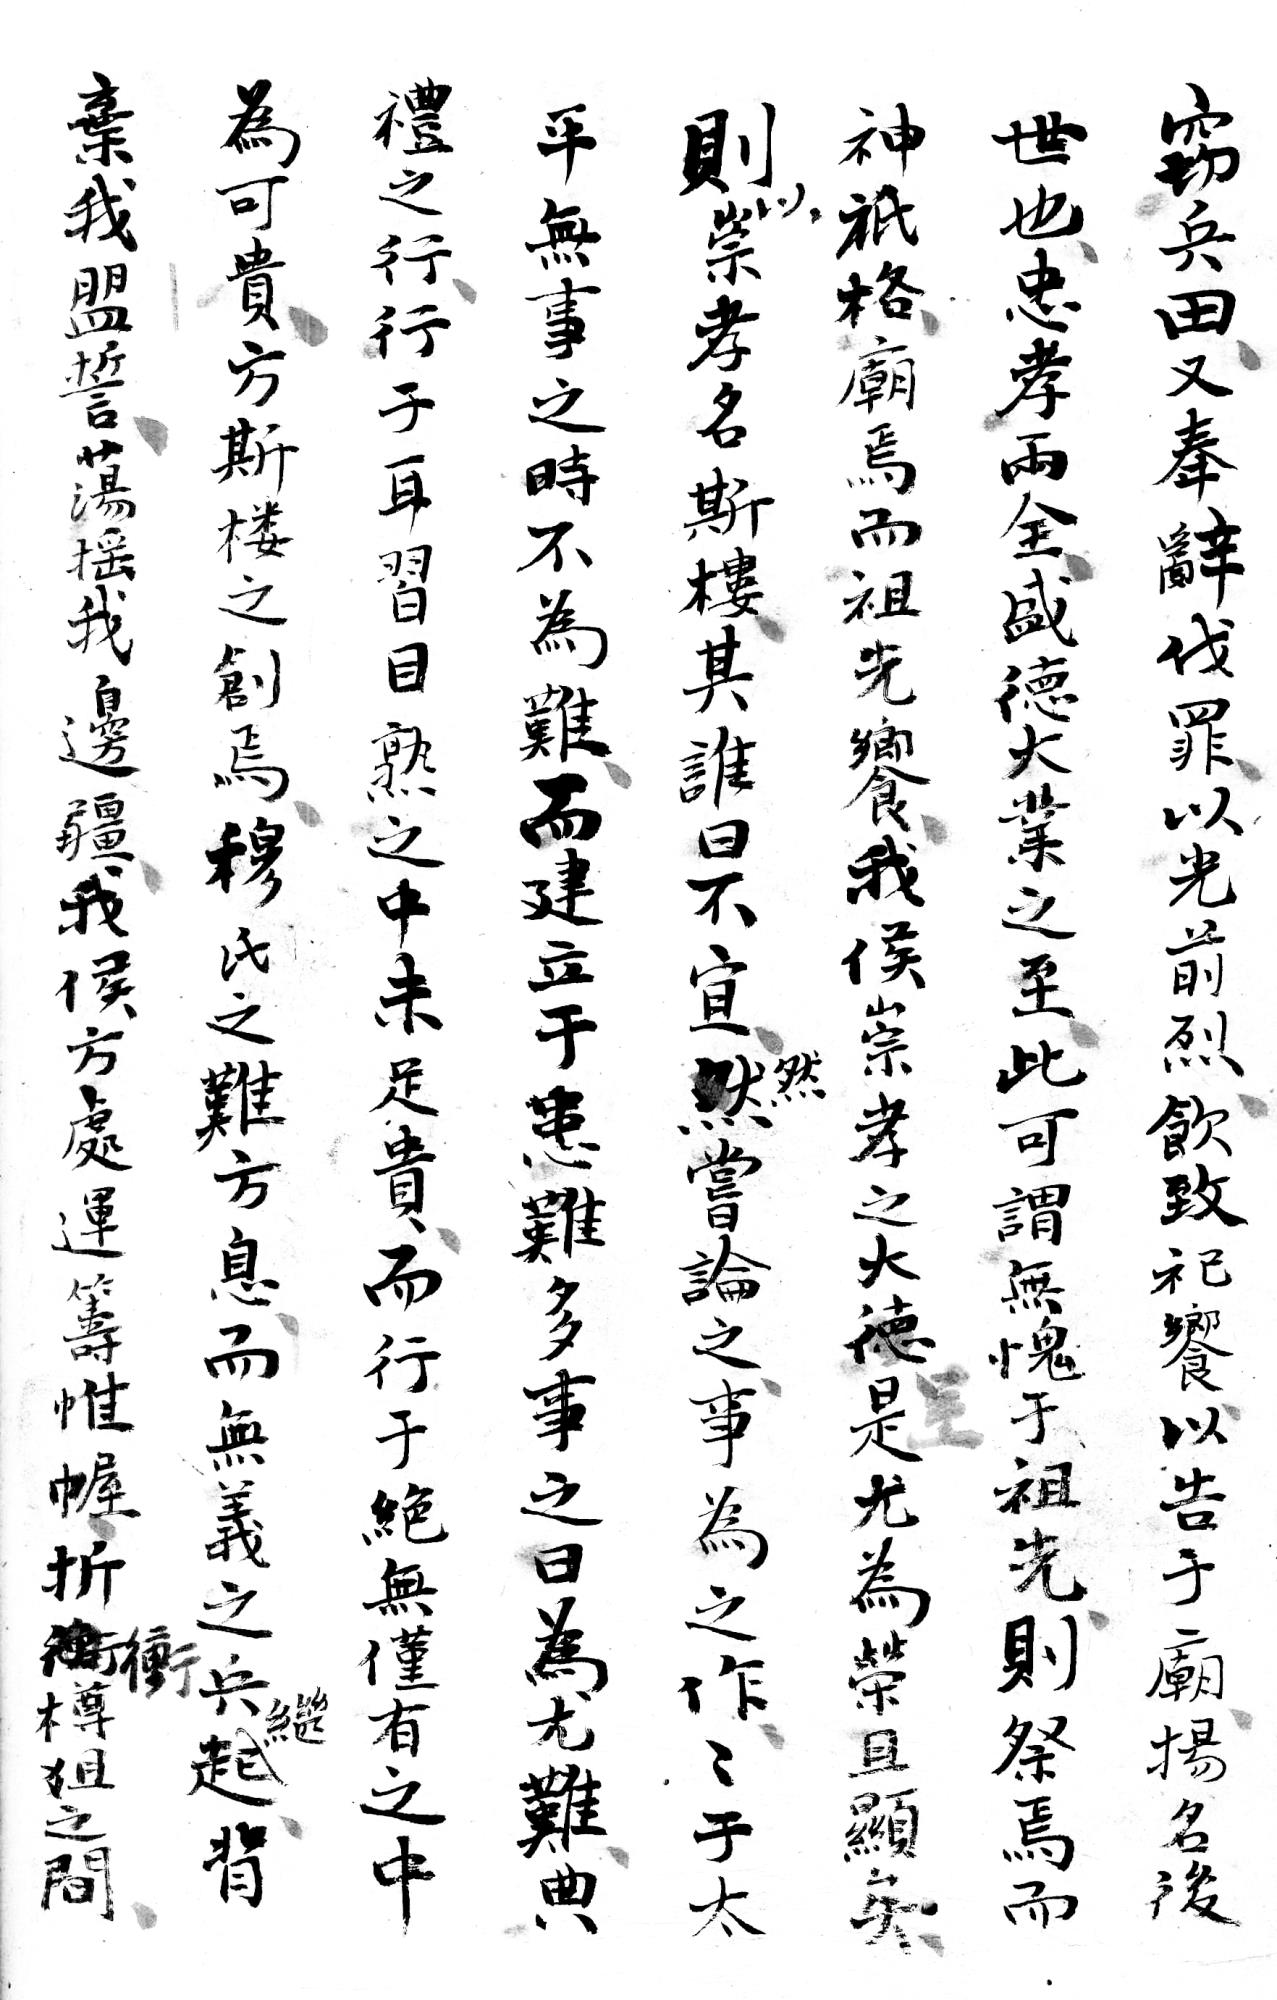 窃兵田又奉辭伐罪以光前烈飲致祀饗以告于廟揚名後
世也忠孝兩全盛德大業之至此可謂無愧于祖先則祭焉而
神祇格廟焉而祖先饗我侯崇孝之大德是尤為榮且顯矣
則以崇孝名斯樓其誰曰不宜然嘗論之事為之作〻于太
平無事之時不為難而建立于患難多事之日為尤難典
禮之行行于耳習目熟之中未足貴而行于絕無僅有之中
為可貴方斯楼之創焉穆氏之難方息而無義之兵繼起背
棄我盟誓蕩搖我邊疆我侯方處運籌帷幄折衝樽俎之間